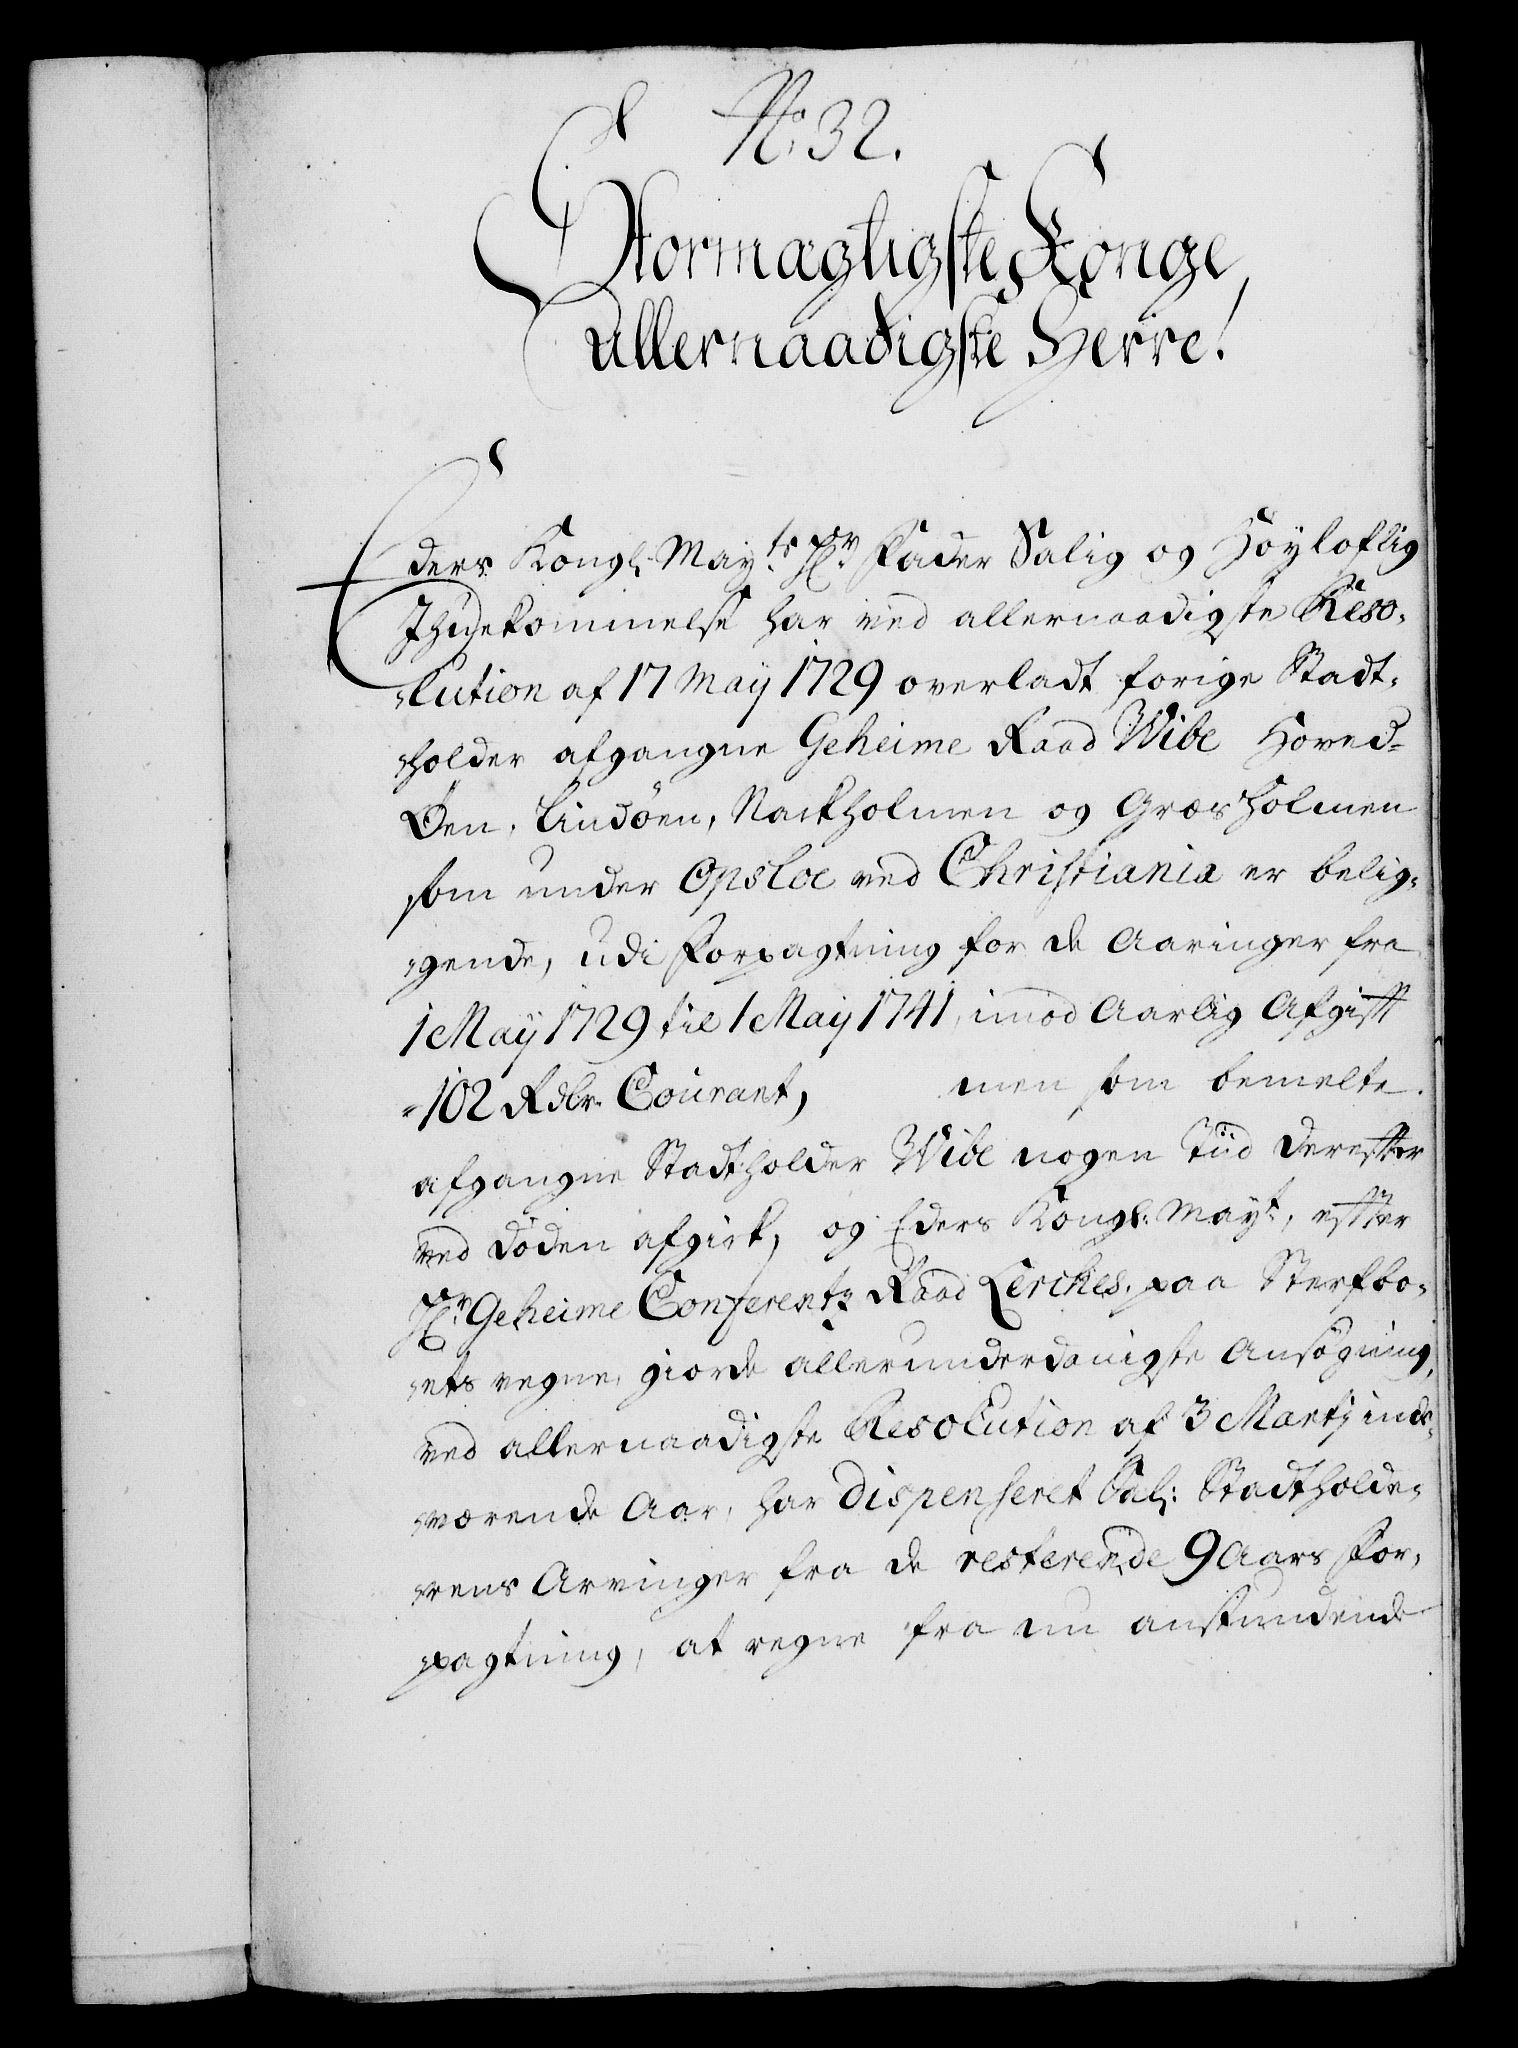 No. 32.
Stormægtigste Konge,
Allernaadigste Herre!
Eders Kongl. Mayts. Hr. Fader Salig og Høyloflig
Ihukommelse har ved allernaadigste Reso-
-lution af 17 May 1729 overladt forige Stadt-
-holder afgangne Geheime Raad Wibe Hoved-
Øen, Lindöen, Nackholmen og Græsholmen
som under Opsloe ved Christiania er belig-
-gende, udi Forpagtning for de Aaringer fra
1 May 1729 til 1 May 1741, imod Aarlig Afgifft
-102 Rdlr. Courant, men som bemelte
afgangne Stadtholder Wibe nogen Tiid derefter
ved Døden afgick, og Eders Kongl: Mayt:, effter
Hr. Geheime Conferentz Raad Lerches, paa Sterfbo-
-ets vegne, giorde allerunderdanigste Ansøgning,
ved allernaadigste Resolution af 3 Martij inde-
-værende Aar, har dispenseret Sal: Stadtholde-
-rens Arvinger fra de resterende 9 Aars For-
-pagtning, at regne fra nu anstundende